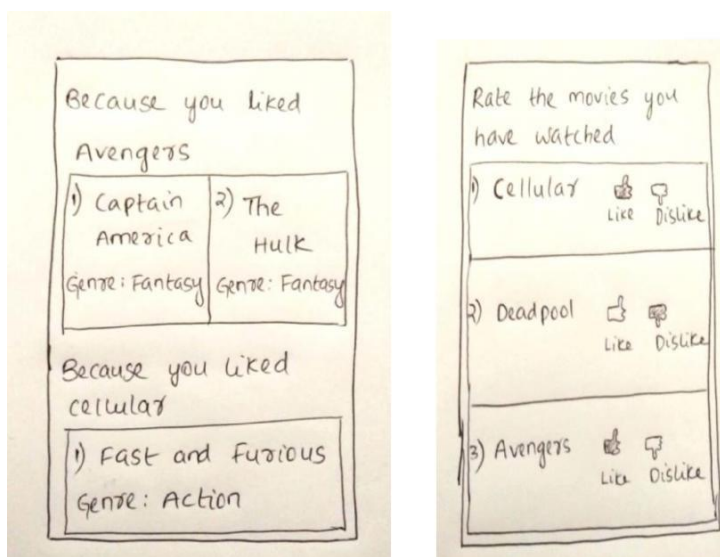 Because you liked
Avengers
1) Captain
America
Genre: Fantasy
2) The
Hulk
Genre: Fantasy
Because you liked
cellular
1) Fast and Furious
Genre: Action
Rate the movies you
have watched
1) Cellular
Like Dislike
2) Deadpool
Like Dislike
3) Avengers
Like Dislike